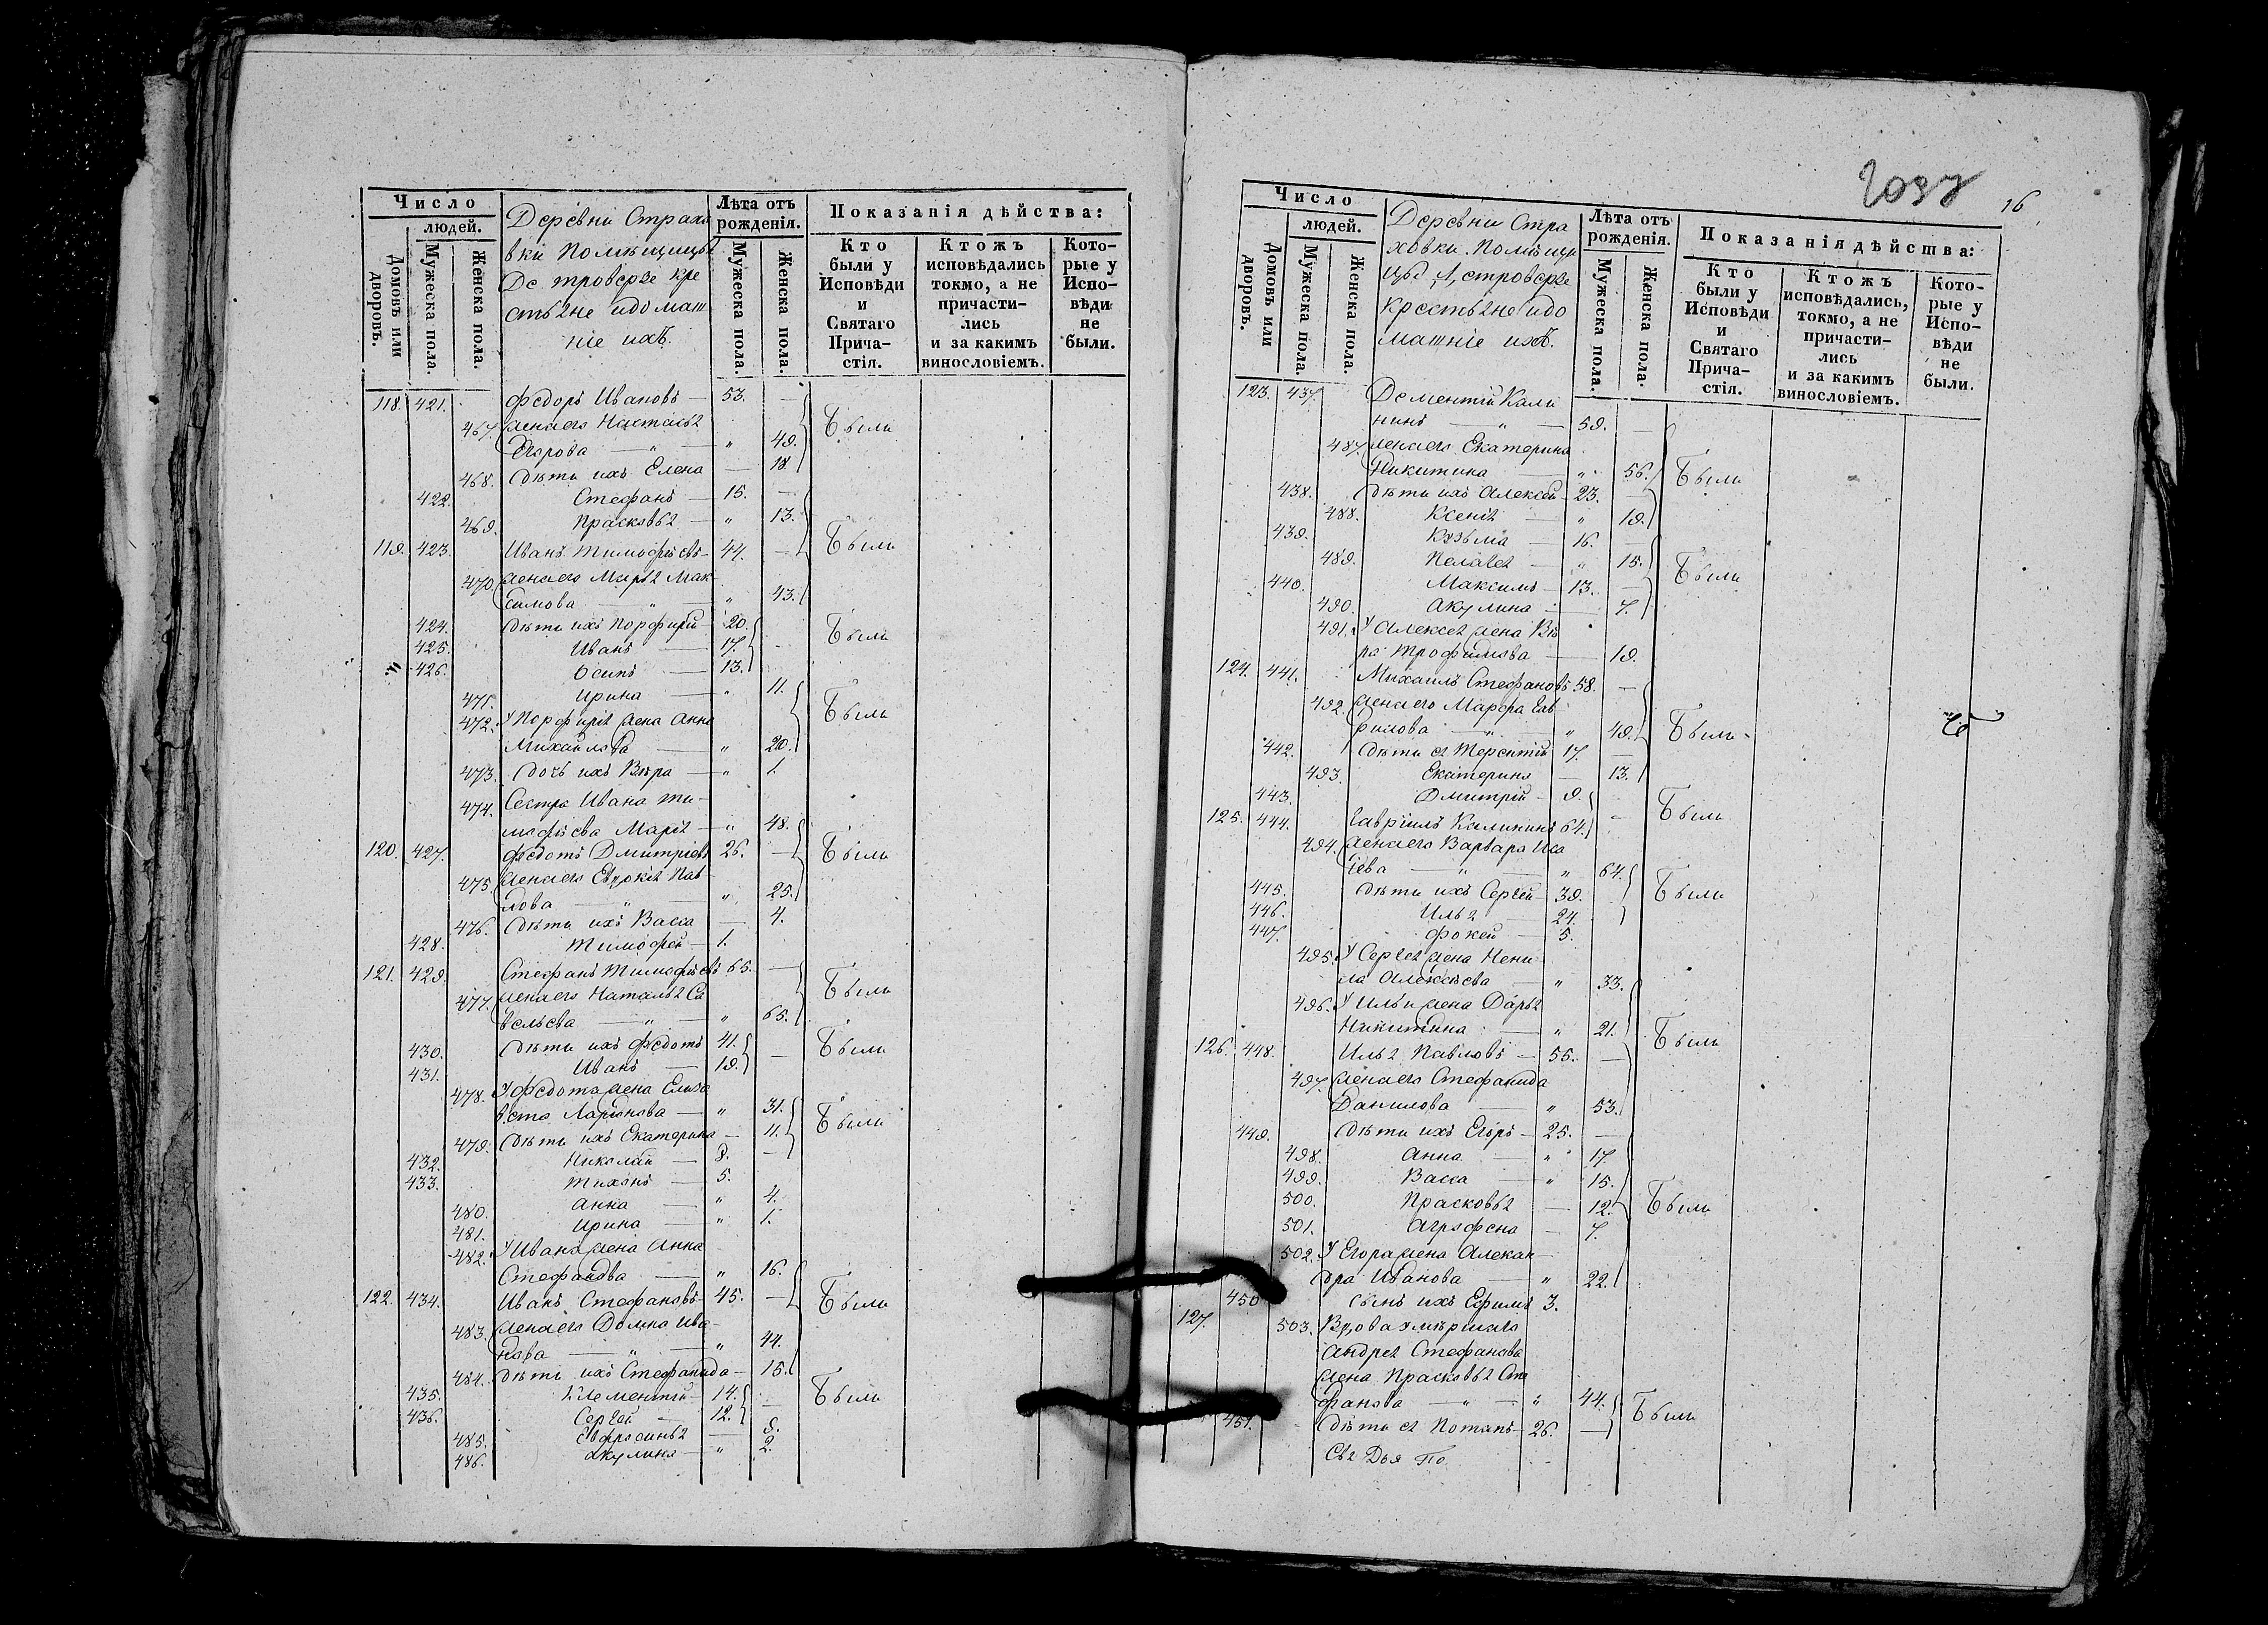 Число
людей.
Домовъ или дворовъ.
Мужеска пола.
Женска пола.
Деревни Страхо
вки Помѣщицы
Де троверзе кре
стьяне и домаш
ніе ихъ.
Лѣта отъ рожденія.
Мужеска пола.
Женска пола.
Показанія дѣйства:
Кто были у Исповѣди и Святаго Прича-стія.
Ктожъ исповѣдались токмо, а не причасти-лись и за какимъ винословіемъ.
Кото-рые у Испо-вѣди не были.
118. 421. Федоръ Ивановъ — 53. —
467. Жена его Наталья
Егорова — „ 49. Были
468. Дѣти ихъ Елена — 18.
422. Стефанъ — 15. —
469. Прасковья — „ 13.
119. 423. Иванъ Тимофѣевъ — 44. — Были
470. Жена его Марья Мак
симова — „ — „ 43.
424. Дѣти ихъ Порфирій — 20.
425. Иванъ — 17. Были
„ 426. Осипъ — 13.
471. Ирина — „ 11.
472. У Порфирія жена Анна Были
Михайлова — „ 20.
473. Дочь ихъ Вѣра — „ 1.
474. Сестра Ивана Ти-
мофѣева Марія — „ 48.
120. 427. Федотъ Дмитріевъ 26. — Были
475. Жена его Евдокія Пав
лова — „ — „ 25.
476. Дѣти ихъ Васса — 4.
428. Тимофей — 1.
121. 429. Стефанъ Тимофѣевъ 65. —
477. Жена его Наталья Са Были
вельева — „ — „ 65.
430. Дѣти ихъ Федотъ 41. Были
431. Иванъ — 19. —
478. У Федота жена Елиза
вета Ларіонова — „ 31. Были
479. Дѣти ихъ Екатерина — 11.
432. Николай — 9. —
433. Тихонъ — 5.
480. Анна — „ 4.
481. Ирина — „ 1.
482. У Ивана жена Анна
Стефанова — „ 16.
122. 434. Иванъ Стефановъ 45. — Были
483. Жена его Домна Ива-
нова — „ — „ 44.
484. Дѣти ихъ Стефанида — 15.
435. Клементій — 14. Были
436. Сергей — 12. —
485. Евфросинья — 8.
486. Акулина — „ 2.
16
Число
людей.
Домовъ или дворовъ.
Мужеска пола.
Женска пола.
Деревни Стра
ховки Помѣщи
цы
Крестьяне и до
машніе ихъ.
Лѣта отъ рожденія.
Мужеска пола.
Женска пола.
Показанія дѣйства:
Кто были у Исповѣди и Святаго Прича-стія.
Ктожъ исповѣдались, токмо, а не причасти-лись и за какимъ винословіемъ.
Кото-рые у Испо-вѣди не были.
123. 437. Дементій Кали
нинъ — „ — 59. —
487. Жена его Екатерина
Никитина — „ 56. Были
438. Дѣти ихъ Алексей — 23. —
488. Ксенія — „ 19.
439. Кузьма — 16. —
489. Пелагея — „ 15. Были
440. Максимъ — 13. —
490. Акулина — 7.
491. У Алексея жена Вѣ
ра Трофимова — 19.
124. 441. Михаилъ Стефановъ 58. —
492. Жена его Марфа Гав
рилова — „ — „ 49. Были
442. Дѣти ея Терентій 17. —
493. Екатерина — 13.
443. Дмитрій — 9. — Были
125. 444. Гавріилъ Калининъ 64.
494. Жена его Варвара Иса
іева — „ — „ 64.
445. Дѣти ихъ Сергей — 39. Были
446. Илья — 24.
447. Фокей — 5.
495. У Сергея жена Нени
ла Алексѣева — „ 33.
496. У Ильи жена Дарья
Никитина — „ 21. Были
126. 448. Илья Павловъ — 55. —
497. Жена его Стефанида
Данилова — „ 53.
449. Дѣти ихъ Егоръ — 25. —
498. Анна — „ 17.
499. Васса — „ 15.
500. Прасковья — 12. Были
501. Аграфена — 7.
502. У Егора жена Алексан-
дра Иванова — „ 22.
450 Сынъ ихъ Ефимъ 3.
127. 503. Вдова умершаго
Андрея Стефанова
жена Прасковья Сте
фанова — „ — „ 44. Были
451. Дѣти ея Потапъ — 26. —